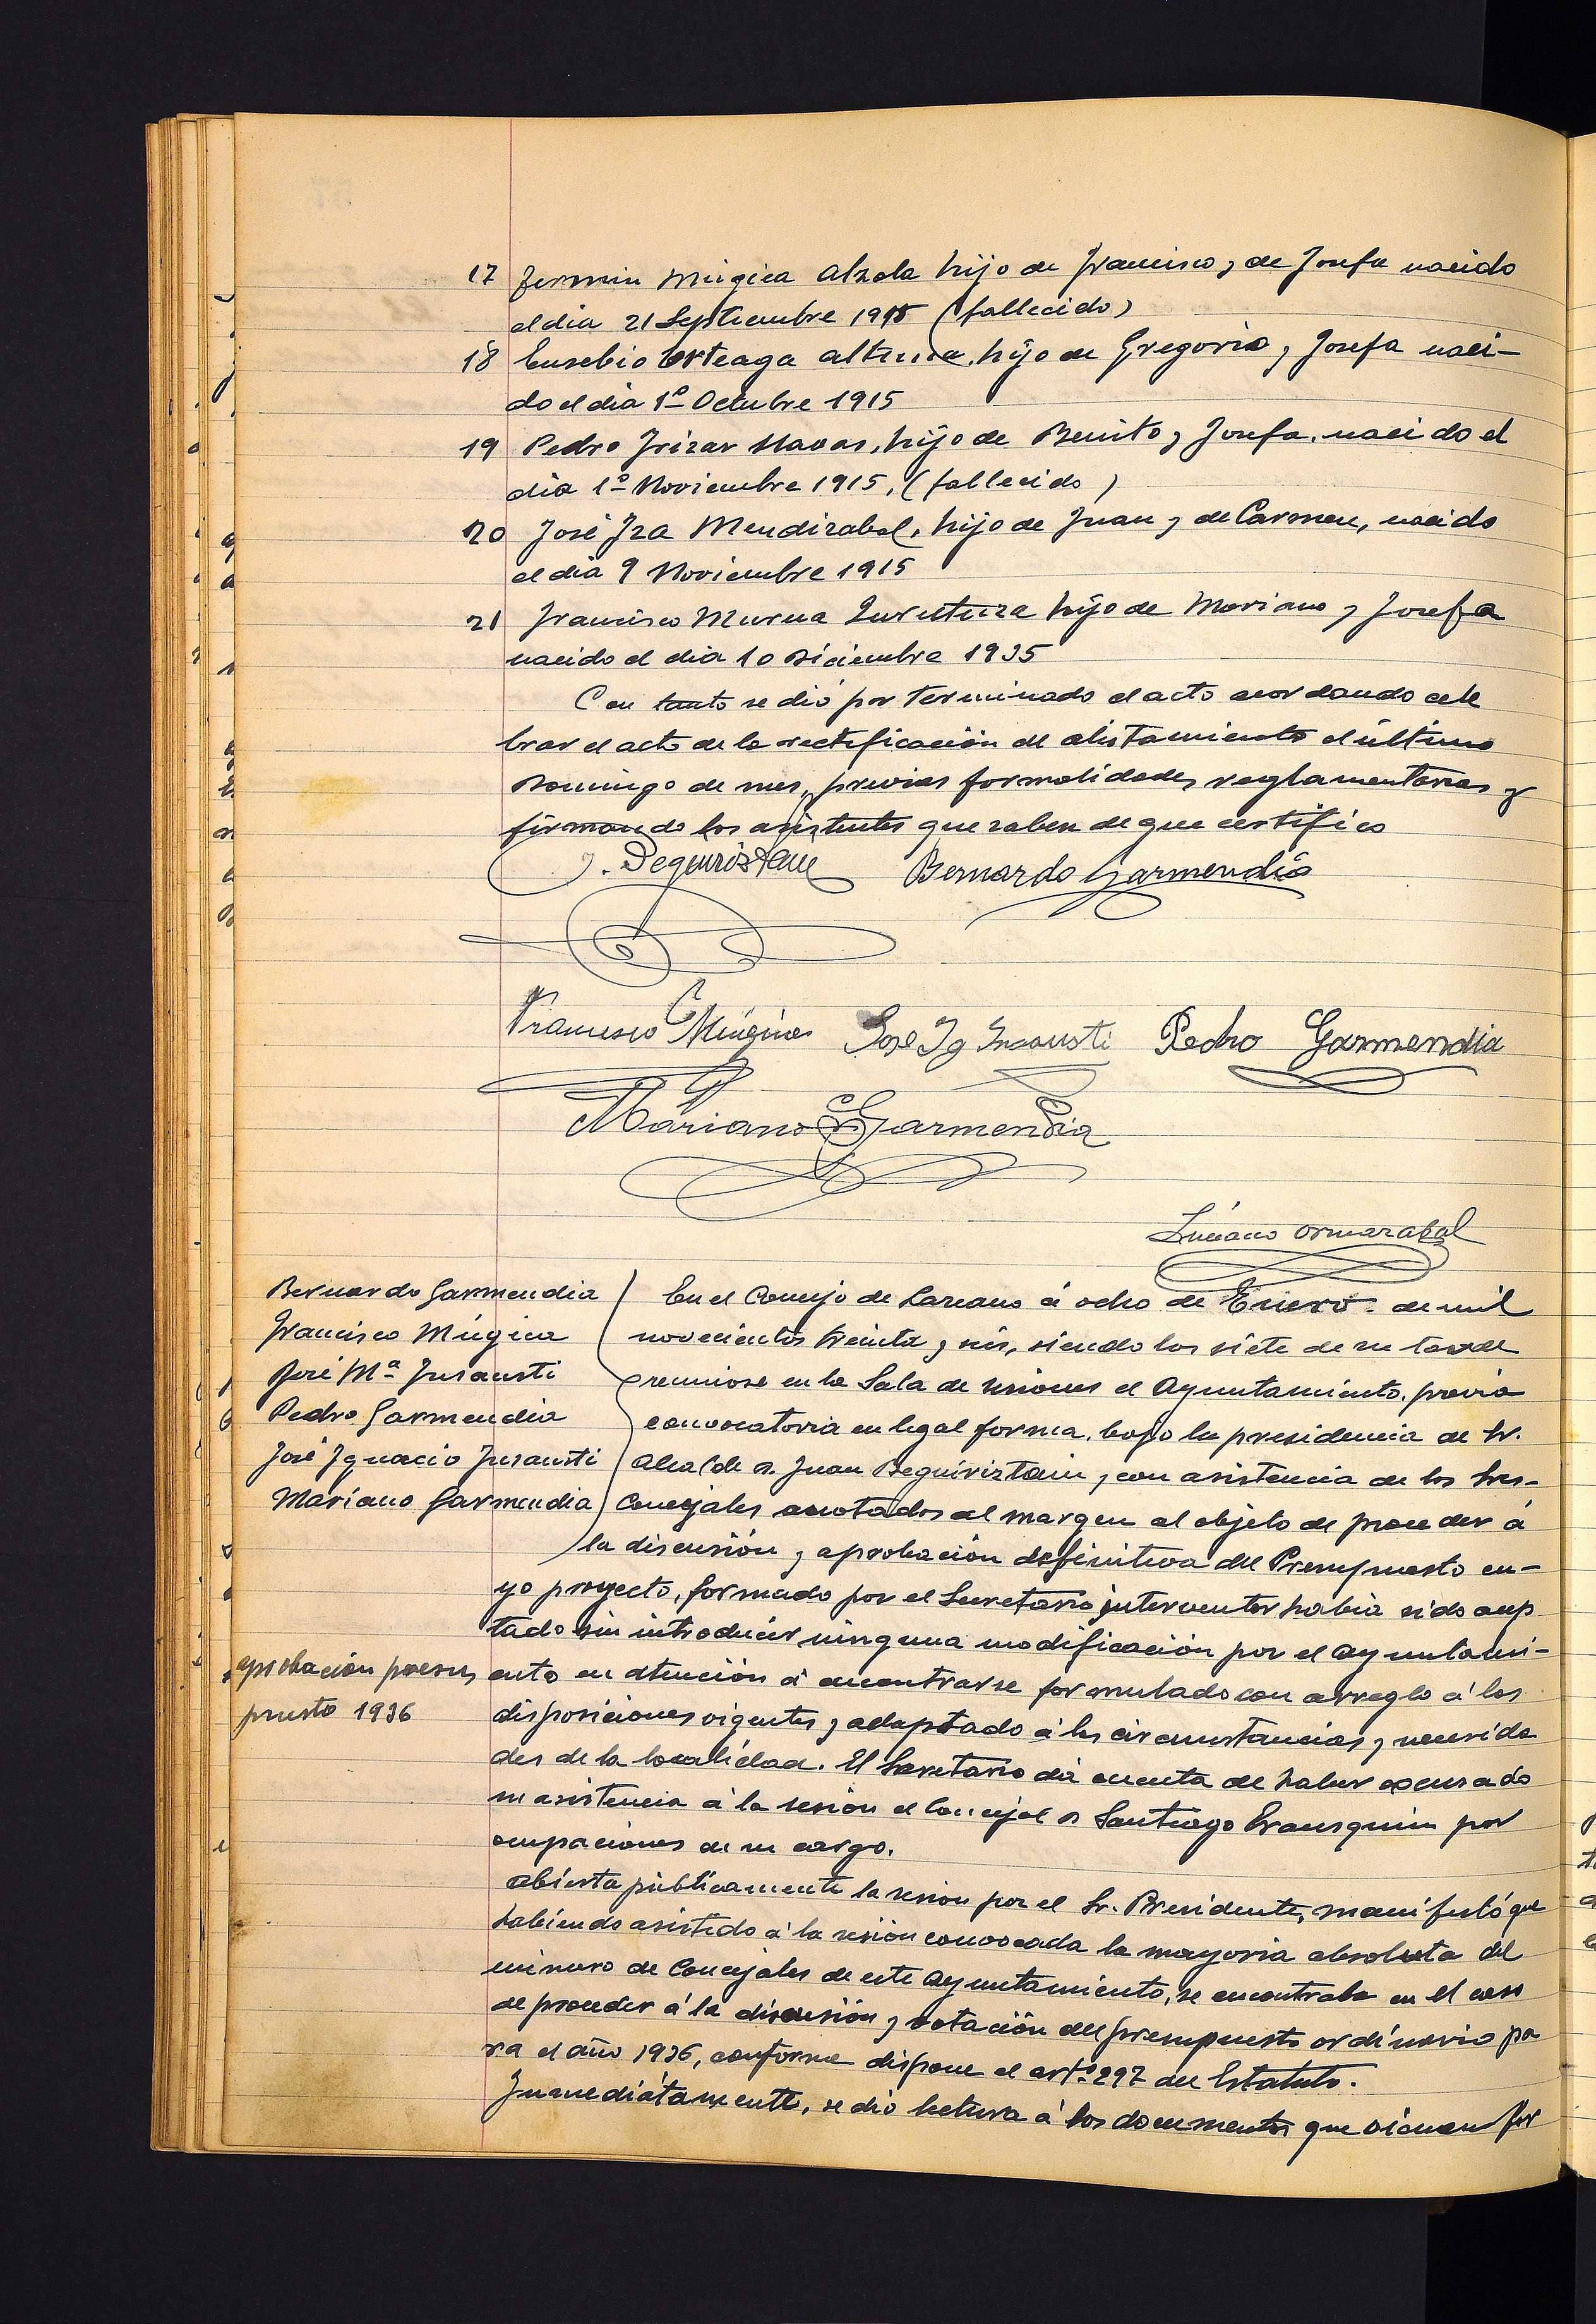 17 Fermin Múgica Alzola hijo de Francisco y de Josefa nacido
el dia 21 Septiembre 1915 (fallecido)
18 Eusebio Urteaga Altuna, hijo de Gregorio y Josefa naci-
do el dia 1º Octubre 1915
19 Pedro Irizar Navas, hijo de Benito y Josefa, nacido el
dia 1º Noviembre 1915, (fallecido)
20 José Iza Mendizabal, hijo de Juan y de Carmen, nacido
el dia 9 Noviembre 1915
21 Francisco Murua hijo de Mariano y Josefa
nacido el dia 10 Diciembre 1935
Con tanto se dió por terminado el acto acordando cele
brar el acto de la rectificación de alistamiento el último
Domingo de mes, previas formalidades reglamentarias y
firmando los asistentes que saben de que certifico
J. Beguiristain Bernardo Garmendia
Francisco Múgica José Ig Insausti Pedro Garmendia
Mariano Garmendia
Luciano Ormazabal
Bernardo Garmendia
Francisco Múgica
José Mª Insausti
Pedro Garmendia
José Ignacio Insausti
Mariano Garmendia
En el Concejo de Lazcano á ocho de Enero de mil
novecientos treinta y seis, siendo las siete de su tarde
reuniose en la Sala de sesiones el Ayuntamiento, previa
convocatoria en legal forma, bajo la presidencia de Sr.
Alcalde D. Juan Beguiriztain y con asistencia de los Sres-
Concejales anotados al margen al objeto de proceder á
la discusión y aprobación definitiva del Presupuesto cu-
yo proyecto, formado por el Secretario interventor habia sido acep
tado sin introducir ninguna modificación por el Ayuntami-
aprobación presu
puesto 1936
ento en atención á encontrarse formulado con arreglo á las
disposiciones vigentes y adaptado á las circunstancias y necesida
des de la localidad. El Secretario dá cuenta de haber excusado
su asistencia á la sesión el Concejal D Santiago Irausquin por
ocupaciones de su cargo.
Abierta públicamente la sesion por el Sr. Presidente, manifestó que
habiendo asistido á la sesión convocada la mayoria absoluta del
número de Concejales de este Ayuntamiento, se encontraba en el caso
de proceder á la discusión y votación del presupuesto ordinario pa
ra el año 1936, conforme dispone el artº. 297 del Estatuto.
Inmediátamente, se dió lectura á los documentos que vienen for